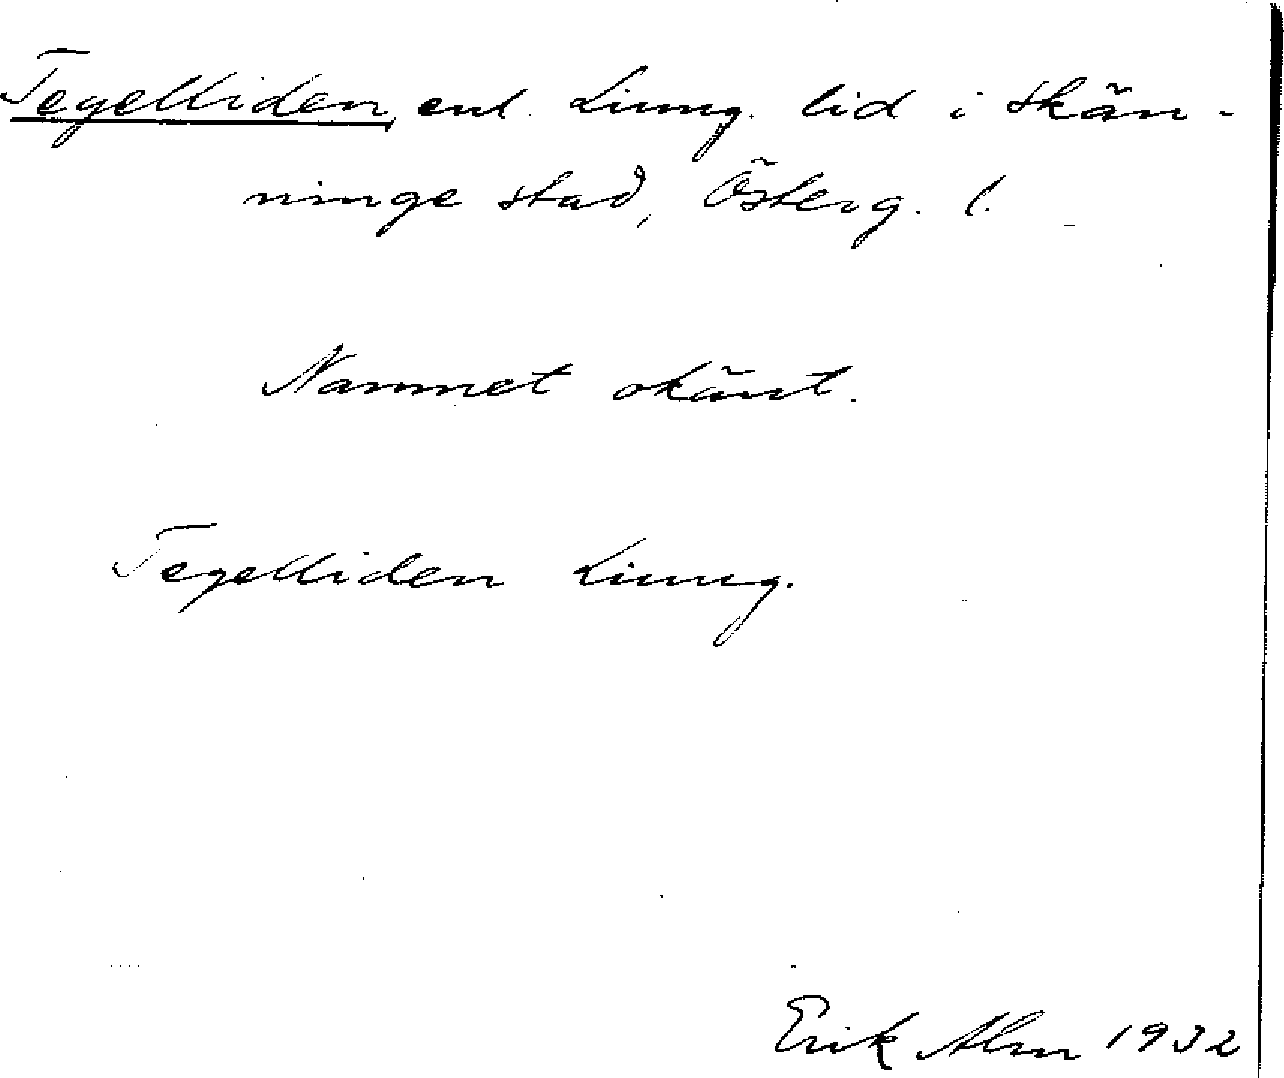 Tegelliden, enl. Ljung. lid i Skän-
ninge stad, Österg. l.
Namnet okänt.
Tegelliden Ljung.
Erik Alm 1932